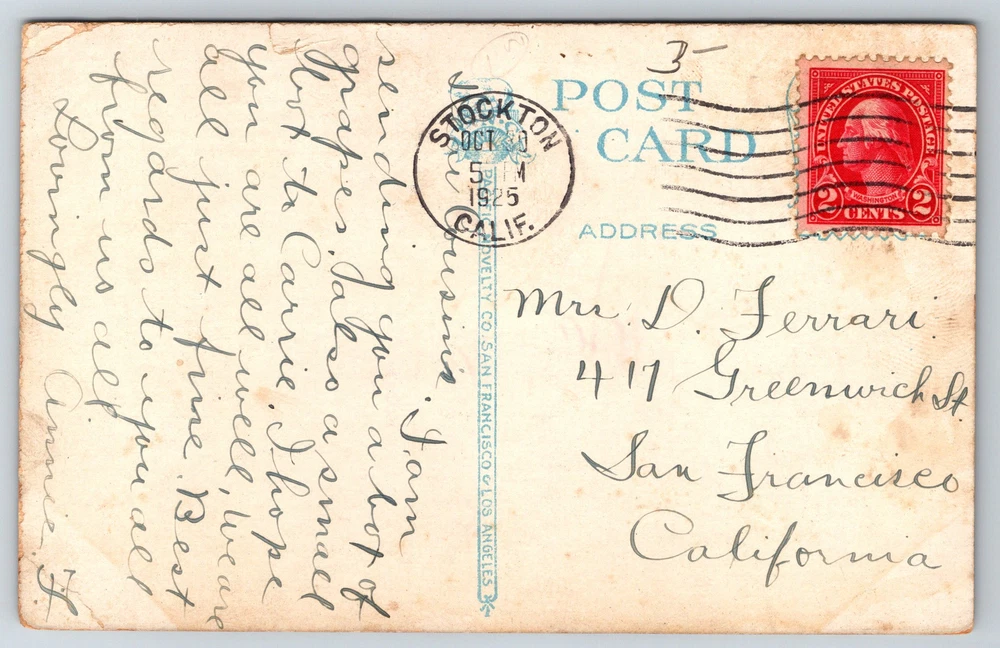 Dear Cousin.
I am
sending you a box of
grapes. also a small
box to Carrie. I hope
you are all well, we are
all just fine. Best
regards to you all
from us all
Lovingly Annie. F.
3
POST
CARD
ADDRESS
STOCKTON
OCT 0
5 PM
1925
CALIF.
UNITED STATES POSTAGE
WASHINGTON
2 CENTS 2
NOVELTY CO. SAN FRANCISCO & LOS ANGELES
Mrs. D. Ferrari
417 Greenwich St
San Francisco
California